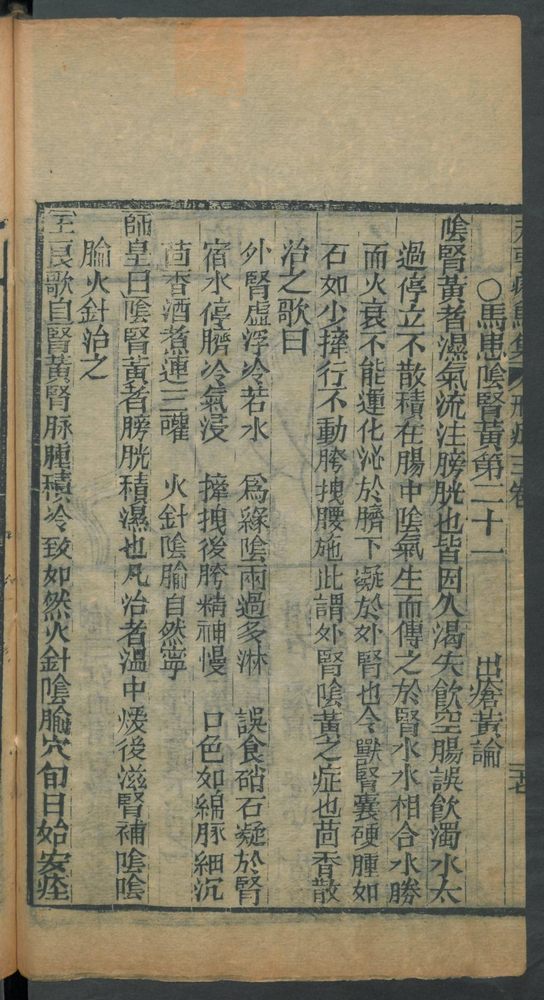 ○馬患陰腎黃第二十一 出瘡黃論
陰腎黃者濕氣流注膀胱也皆因久渴失飲空腸誤飲濁水太
過停立不散積在腸中陰氣生而傳之於腎水水相合水勝
而火衰不能運化泌於臍下凝於外腎也令獸腎囊硬腫如
石如少擡行不動胯拽腰拖此謂外腎陰黃之症也茴香散
治之歌曰
外腎虛浮冷若水 為緣陰雨過多淋 誤食硝石凝於腎
宿水停臍冷氣浸 擡拽後胯精神慢 口色如綿脉細沉
茴香酒煮連三嚾 火針陰腧自然寧
師皇曰陰腎黃者膀胱積濕也凡治者溫中煖後滋腎補陰陰
腧火針治之
王良歌曰腎黃腎脉腫積冷致如然火針陰腧穴旬日始安痊